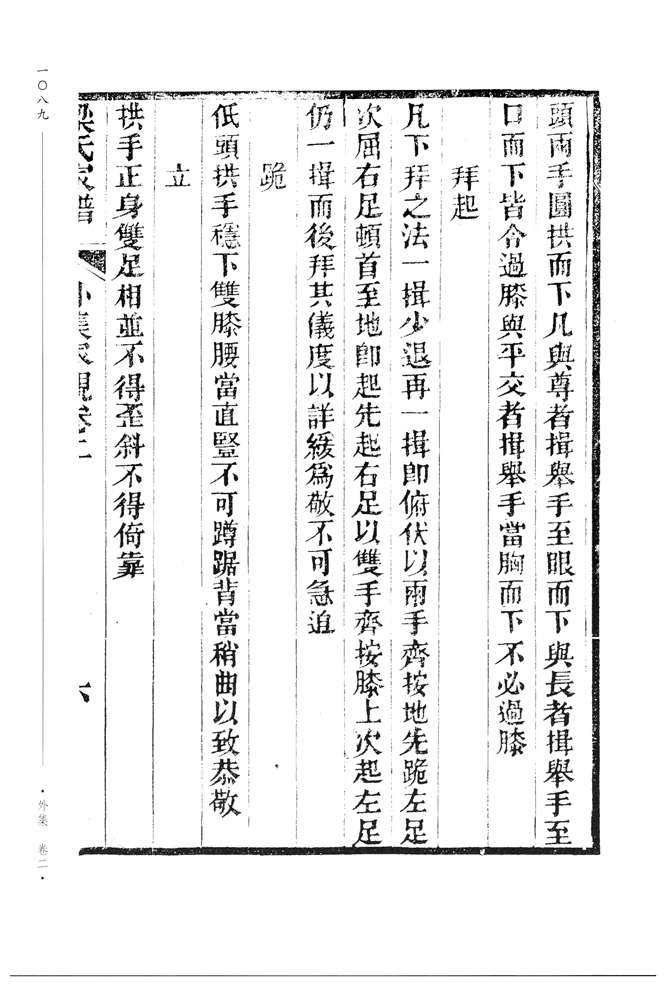 頭兩手圓拱而下凡與尊者揖舉手至眼而下與長者揖舉手至
口而下皆令過膝與平交者揖舉手當胸而下不必過膝
拜起
凡下拜之法一揖少退再一揖卽俯伏以兩手齊按地先跪左足
次屈右足頓首至地卽起先起右足以雙手齊按膝上次起左足
仍一揖而後拜其儀度以詳緩爲敬不可急迫
跪
低頭拱手穩下雙膝腰當直豎不可蹲踞背當稍曲以致恭敬
立
拱手正身雙足相並不得歪斜不得倚靠
梁氏家譜 外集家規卷二 六
一〇八九
·外集 卷二·